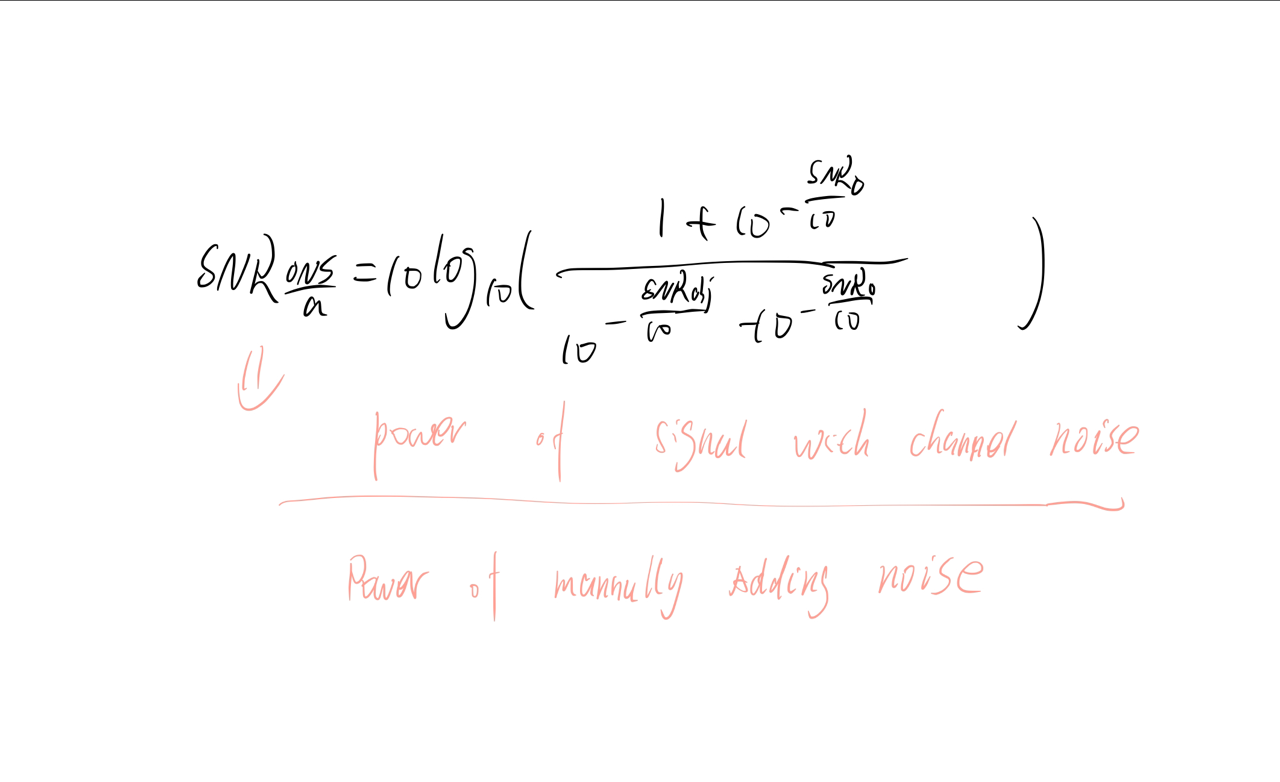 SNR ons/a = 10 log10 ( (1 + 10^(-SNR0/10)) / (10^(-SNRobj/10) - 10^(-SNR0/10)) )
⇓
power of signal with channel noise
Power of mannully Adding noise